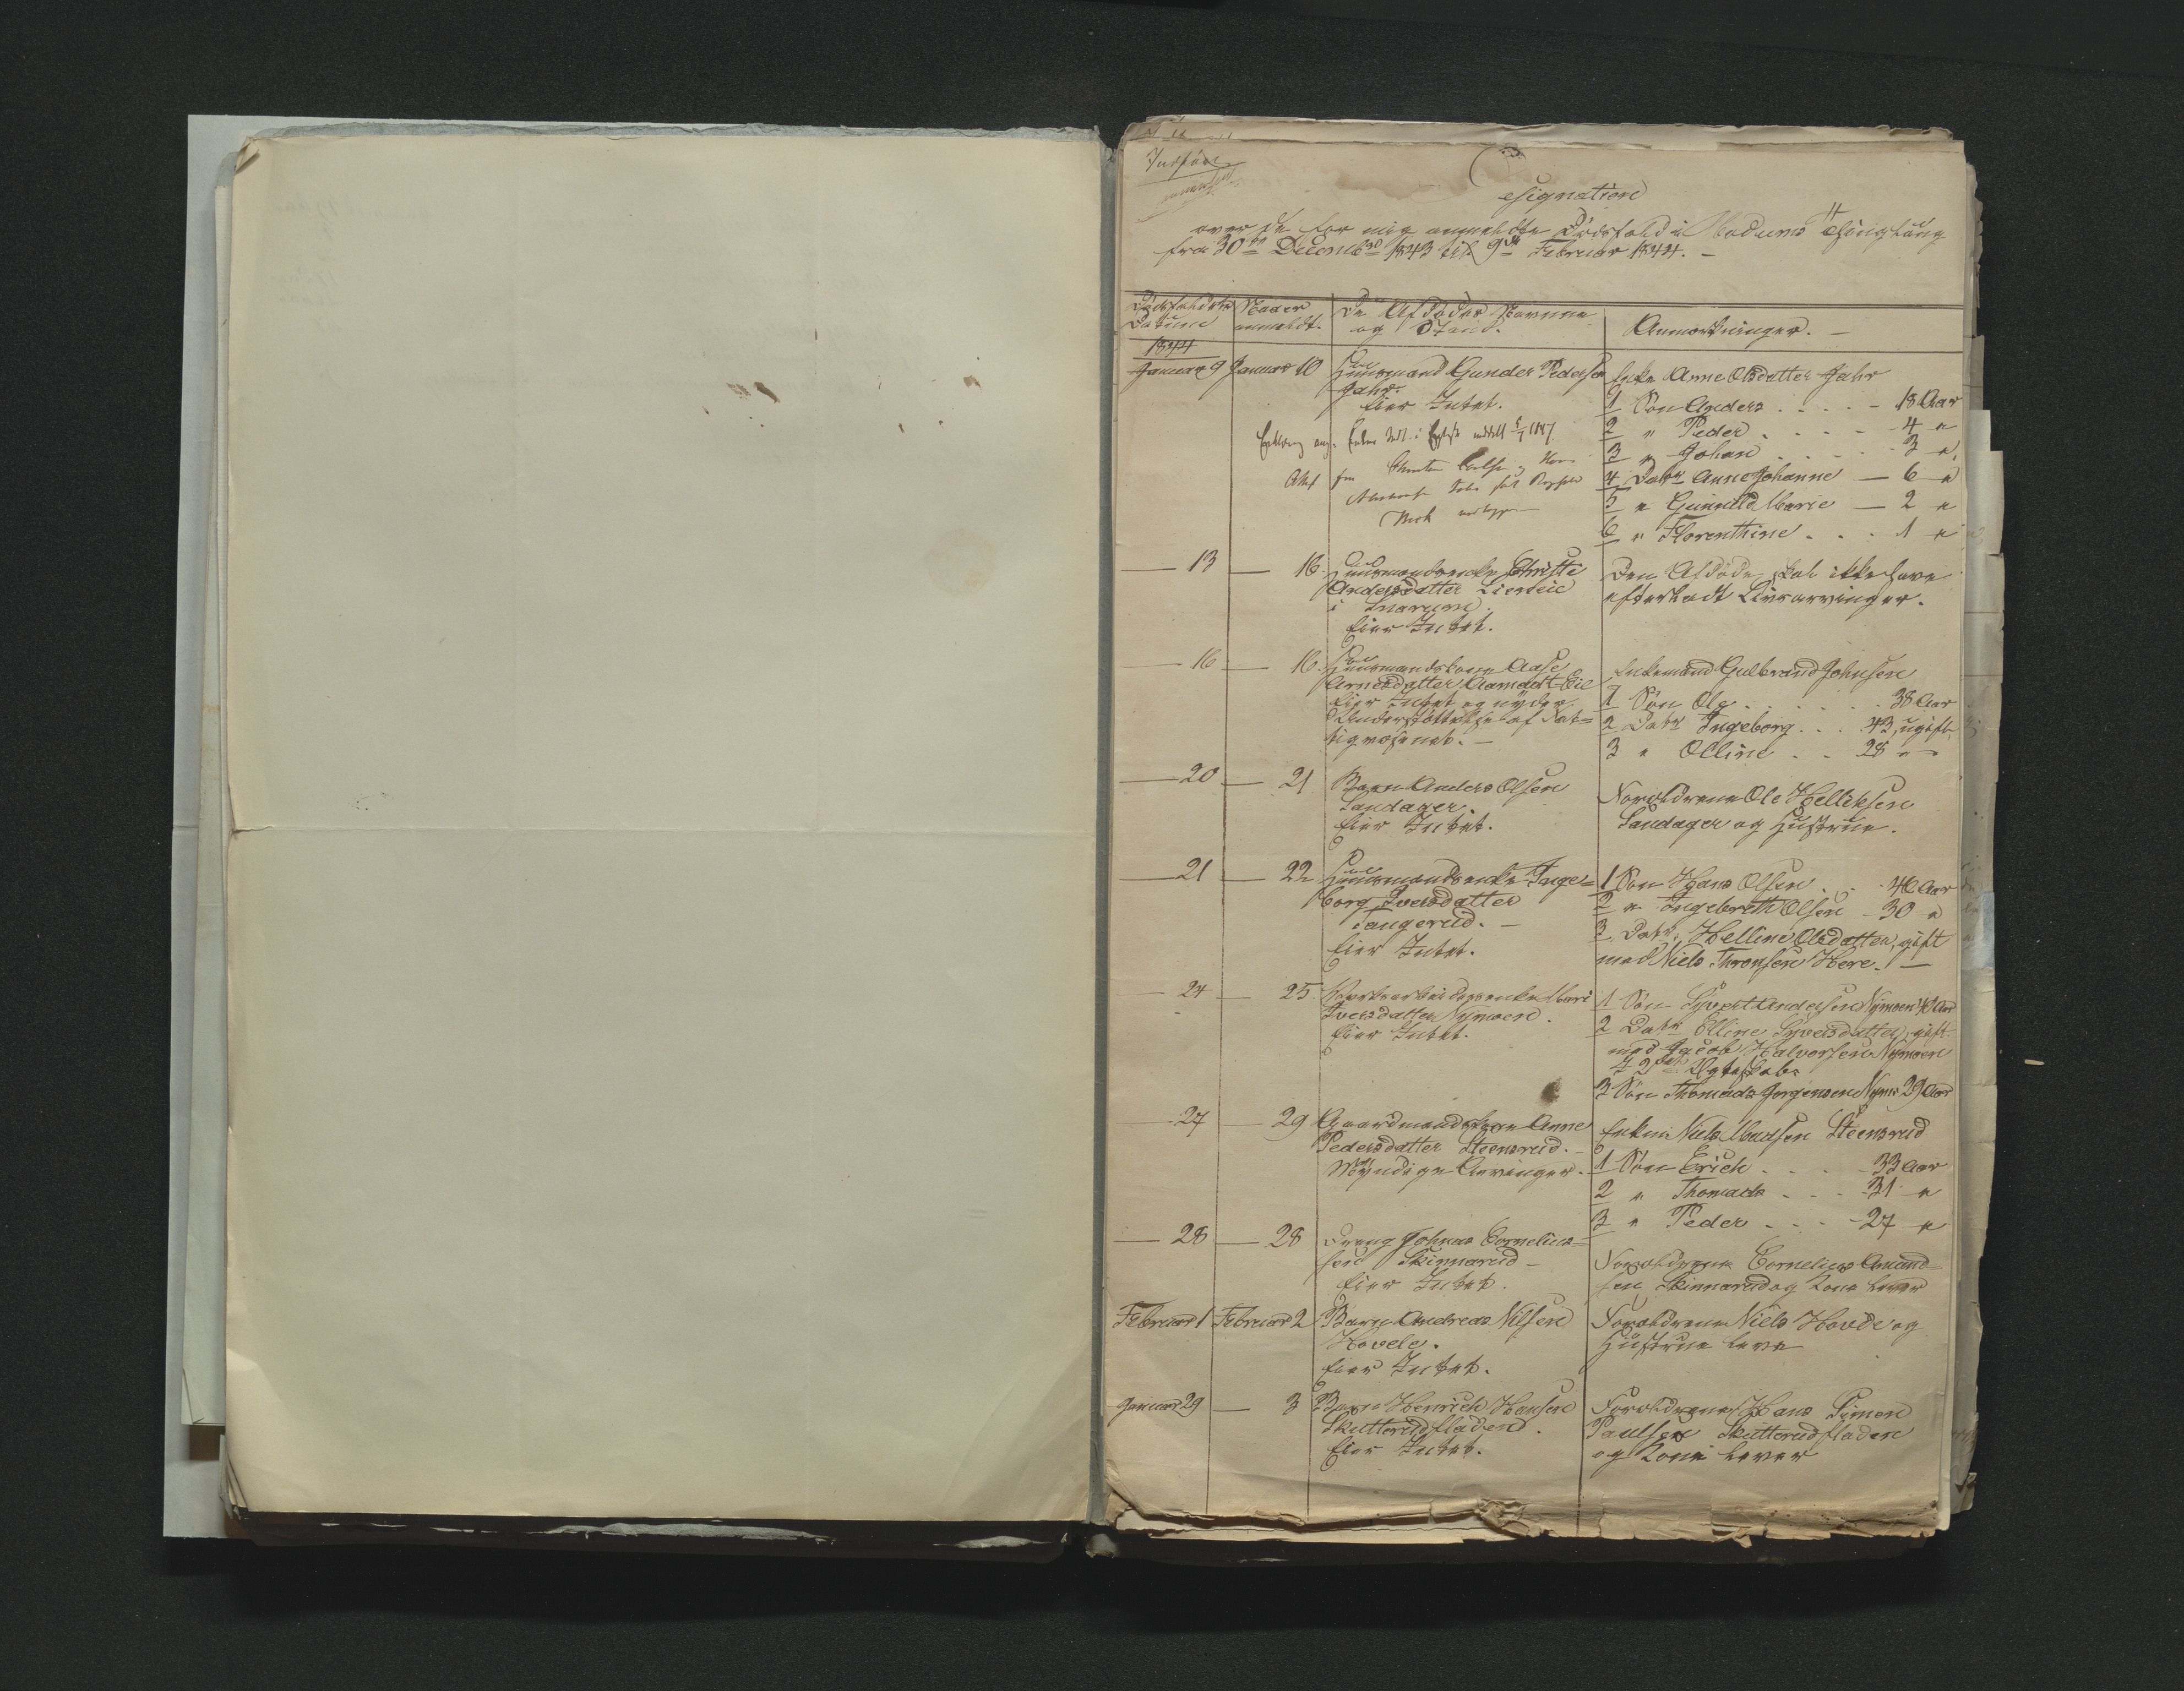 Indført
Designation
over de for mig anmeldte Dødsfald i Modums Thinglaug
fra 30te Decembr 1843 til 9de Februar 1844. -
Dødsfaldets Datum
Naar anmeldt.
De Afdødes Navne og Stand.
Anmærkninger. -
1844
Januar 9 Januar 10 Huusmand Gunder Pedersen
Jahr.
Eier Intet.
Enke Anne Olsdatter Jahr
1 Søn Anders . . . . - 13 Aar
2 " Peder . . . . - 4 "
3 " Johan . . . . . 3 "
4 Datr Anne Johanne — 6 "
5 " Gunnild Marie — 2 "
6 " Florenthine . . . 1 "
— 13 — 16. Huusmandsenke Christi
Andersdatter Liereie
i Snarum.
Eier Intet.
Den Afdøde skal ikke have
efterladt Livsarvinger.
— 16 — 16. Huusmandskone Aase
Arnesdatter Aamodt Eie
Eier Intet og nyder
Understøttelse af Fat=
tigvæsenet. —
Enkemand Gulbrand Johnsen
1 Søn Ole . . . . . 38 Aar
2 Datr Ingeborg . . . 43, ugift
3 " Olline . . 28 " "
— 20 — 21 Barn Anders Olsen
Sandager.
Eier Intet.
Forældrene Ole Helleksen
Sandager og Hustrue.
— 21 — 22 Huusmandsenke Inge=
borg Iversdatter
Tangerud. —
Eier Intet.
1 Søn Hans Olsen . . 40 Aar
2 " Ingebreth Olsen - 30 "
3 Datr. Helline Olsdatter, gift
med Niels Thronsen Here. —
— 24 — 25 Værksarbeidersenke Mari
Iversdatter Nymoen.
Eier Intet.
1 Søn Syvert Andersen Nymoen 40 Aar
2 Datr Elline Syversdatter, gift
med Jacob Halvorsen Nymoen
2det Ægteskab
3 Søn Thomads Jørgensen Nymo 29 Aar
— 27 — 29 Gaardmandskone Anne
Pedersdatter Steensrud. -
Myndige Arvinger.
Enkem Niels Madsen Steensrud
1 Søn Erich . . . . 33 Aar
2 " Thomads . . . 31 "
3 " Peder . . . 27 "
— 28 — 28 Dreng Johnas Cornelius=
sen Skinnarud —
Eier Intet.
Forældrene Cornelius Amund=
sen Skinnarud og Kone lever
Februar 1 Februar 2 Barn Andreas Nilsen
Hovde.
Eier Intet.
Forældrene Niels Hovde og
Hustrue leve
Januar 29 — 3 Barn Henrich Hansen
Skutterudfladen.
Eier Intet.
Forældrene Hans Simon
Paulsen Skutterudfladen
og Kone lever